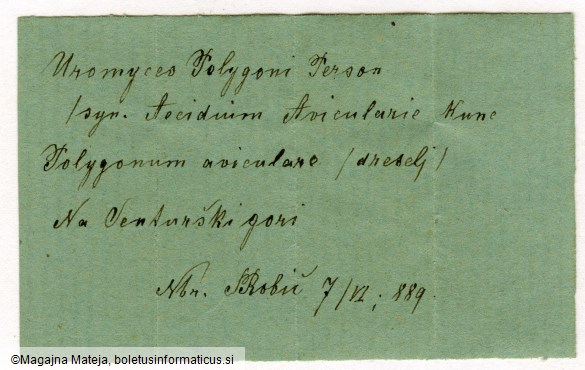 Uromyces Polygoni Person
/syn. Aecidium Avicularie Kunc
Polygonum aviculare /dreselj/
Na Šenturški gori
Nbr. SRobič 7/VI; 889.
©Magajna Mateja, boletusinformaticus.si